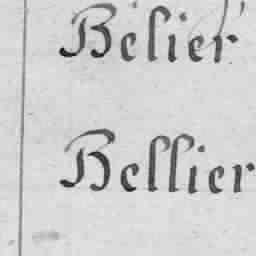 Belier
Bellier